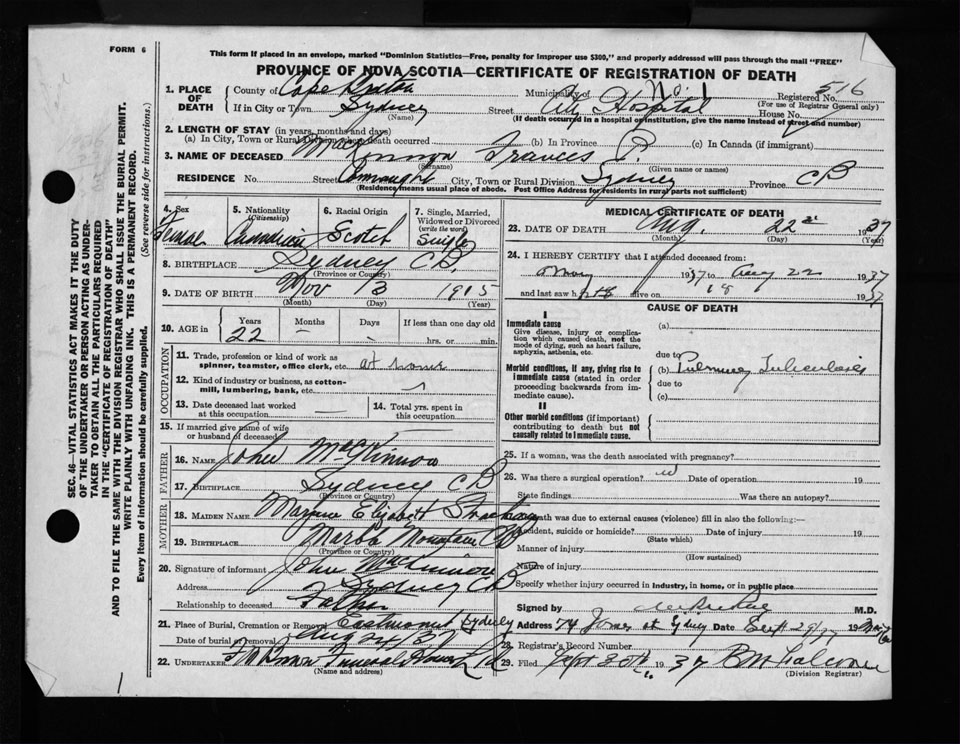 FORM 6
This form if placed in an envelope, marked "Dominion Statistics—Free, penalty for improper use $300," and properly addressed will pass through the mail "FREE"
PROVINCE OF NOVA SCOTIA—CERTIFICATE OF REGISTRATION OF DEATH
1. PLACE OF DEATH County of Cape Breton Municipality of Registered No. 516
(For use of Registrar General only)
If in City or Town Sydney Street City Hospital House No.
(Name) (If death occurred in a hospital or institution, give the name instead of street and number)
2. LENGTH OF STAY (in years, months and days)
(a) In City, Town or Rural Division where death occurred (b) In Province (c) In Canada (if immigrant)
3. NAME OF DECEASED MacKinnon Frances P.
(Surname) (Given name or names)
RESIDENCE No. Street Connaught City, Town or Rural Division Sydney Province CB
(Residence means usual place of abode. Post Office Address for residents in rural parts not sufficient)
4. Sex Female
5. Nationality (Citizenship) Canadian
6. Racial Origin Scotch
7. Single, Married, Widowed or Divorced (write the word) Single
8. BIRTHPLACE Sydney CB.
(Province or Country)
9. DATE OF BIRTH Nov 13 1915
(Month) (Day) (Year)
10. AGE in Years Months Days If less than one day old
22 — — hrs. or min.
OCCUPATION
11. Trade, profession or kind of work as spinner, teamster, office clerk, etc. at home
12. Kind of industry or business, as cotton-mill, lumbering, bank, etc.
13. Date deceased last worked at this occupation —
14. Total yrs. spent in this occupation —
15. If married give name of wife or husband of deceased
FATHER
16. NAME John MacKinnon
17. BIRTHPLACE Sydney CB
(Province or Country)
MOTHER
18. MAIDEN NAME Elizabeth
19. BIRTHPLACE Marble Mountain CB
(Province or Country)
20. Signature of informant John MacKinnon
Address Sydney CB
Relationship to deceased Father
21. Place of Burial, Cremation or Removal Eastmount Sydney
Date of burial or removal Aug 24/37
22. UNDERTAKER Funeral Home Ltd
(Name and address)
MEDICAL CERTIFICATE OF DEATH
23. DATE OF DEATH Aug. 22 1937
(Month) (Day) (Year)
24. I HEREBY CERTIFY that I attended deceased from:
May 1937 to Aug 22 1937
and last saw h alive on 18 1937
CAUSE OF DEATH
I
Immediate cause
Give disease, injury or complication which caused death, not the mode of dying, such as heart failure, asphyxia, asthenia, etc.
(a)
due to
Morbid conditions, if any, giving rise to immediate cause (stated in order proceeding backwards from immediate cause).
(b) Pulmonary Tuberculosis
due to
(c)
II
Other morbid conditions (if important) contributing to death but not causally related to immediate cause.
25. If a woman, was the death associated with pregnancy?
26. Was there a surgical operation? Date of operation 19
State findings Was there an autopsy?
death was due to external causes (violence) fill in also the following:—
Accident, suicide or homicide? Date of injury 19
(State which)
Manner of injury
(How sustained)
Nature of injury
Specify whether injury occurred in industry, in home, or in public place
Signed by M.D.
Address 74 Sydney Date Sept 29
28. Registrar's Record Number
29. Filed Sept 30th 1937
(Division Registrar)
SEC. 46—VITAL STATISTICS ACT MAKES IT THE DUTY
OF THE UNDERTAKER OR PERSON ACTING AS UNDER-
TAKER TO OBTAIN ALL THE PARTICULARS REQUIRED
IN THE "CERTIFICATE OF REGISTRATION OF DEATH"
AND TO FILE THE SAME WITH THE DIVISION REGISTRAR WHO SHALL ISSUE THE BURIAL PERMIT.
WRITE PLAINLY WITH UNFADING INK. THIS IS A PERMANENT RECORD.
Every item of information should be carefully supplied. (See reverse side for instructions.)